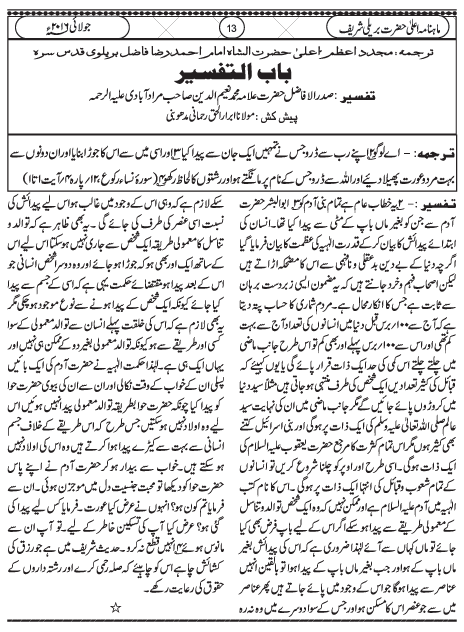 ماہنامہ اعلیٰ حضرت بریلی شریف
13
جولائی ۲۰۱۶ء
ترجمہ: مجدد اعظم اعلیٰ حضرت الشاہ امام احمد رضا فاضل بریلوی قدس سرہ
باب التفسیر
تفسیر: صدر الافاضل حضرت علامہ محمد نعیم الدین صاحب مراد آبادی علیہ الرحمہ
پیش کش: مولانا ابرار الحق رحمانی مدھوبنی
ترجمہ: - اے لوگو ۲ اپنے رب سے ڈرو جس نے تمہیں ایک جان سے پیدا کیا ۳ اور اسی میں سے اس کا جوڑا بنایا اور ان دونوں سے
بہت مرد و عورت پھیلا دیئے اور اللہ سے ڈرو جس کے نام پر مانگتے ہو اور رشتوں کا لحاظ رکھو ۴ (سورۂ نساء رکوع ۱۲؍ پارہ ۴؍ آیت ۱ تا ۱)
تفسیر: - ۲ یہ خطاب عام ہے تمام بنی آدم کو ۳ ابو البشر حضرت
آدم سے جن کو بغیر ماں باپ کے مٹی سے پیدا کیا تھا۔ انسان کی
ابتدائے پیدائش کا بیان کر کے قدرت الٰہیہ کی عظمت کا بیان فرمایا گیا
اگرچہ دنیا کے بے دین بدعقلی و نافہمی سے اس کا مضحکہ اڑاتے ہیں
لیکن اصحاب فہم و خرد جانتے ہیں کہ یہ مضمون ایسی زبردست برہان
سے ثابت ہے جس کا انکار محال ہے۔ مردم شماری کا حساب پتہ دیتا
ہے کہ آج سے ۱۰۰؍ برس قبل دنیا میں انسانوں کی تعداد آج سے بہت
کم تھی اور اس سے ۱۰۰؍ برس پہلے اور بھی کم تو اس طرح جانب ماضی
میں چلتے چلتے اس کمی کی حد ایک ذات قرار پائے گی یا یوں کہئے کہ
قبائل کی کثیر تعدادیں ایک شخص کی طرف منتہی ہو جاتی ہیں مثلاً سید دنیا
میں کروڑوں پائے جائیں گے مگر جانب ماضی میں ان کی نہایت سید
عالم صلی اللہ تعالیٰ علیہ وسلم کی ایک ذات پر ہوگی اور بنی اسرائیل کتنے
بھی کثیر ہوں مگر اس تمام کثرت کا مرجع حضرت یعقوب علیہ السلام کی
ایک ذات ہوگی۔ اسی طرح اور اوپر کو چلنا شروع کریں تو انسانوں
کے تمام شعوب و قبائل کی انتہا ایک ذات پر ہوگی۔ اس کا نام کتب
الٰہیہ میں آدم علیہ السلام ہے اور ممکن نہیں کہ وہ ایک شخص توالد و تناسل
کے معمولی طریقے سے پیدا ہو سکے اگر اس کے لیے باپ فرض بھی کیا
جائے تو ماں کہاں سے آئے لہٰذا ضروری ہے کہ اس کی پیدائش بغیر
ماں باپ کے ہو اور جب بغیر ماں باپ کے پیدا ہوا تو بالیقین انہیں
عناصر سے پیدا ہوگا جو اس کے وجود میں پائے جاتے ہیں پھر عناصر
میں سے جو عنصر اس کا مسکن ہو اور جس کے سوا دوسرے میں وہ نہ رہ
سکے لازم ہے کہ وہی اس کے وجود میں غالب ہو اس لیے پیدائش کی
نسبت اسی عنصر کی طرف کی جائے گی۔ یہ بھی ظاہر ہے کہ توالد و
تناسل کا معمولی طریقہ ایک شخص سے جاری نہیں ہو سکتا اس لیے اس
کے ساتھ ایک اور بھی ہو کہ جوڑا ہو جائے اور وہ دوسرا شخص انسانی جو
اس کے بعد پیدا ہو مقتضائے حکمت یہی ہے کہ اسی کے جسم سے پیدا
کیا جائے کیونکہ ایک شخص کے پیدا ہونے سے نوع موجود ہو چکی مگر
یہ بھی لازم ہے کہ اس کی خلقت پہلے انسان سے توالد معمولی کے سوا
کسی اور طریقے سے ہو کیونکہ توالد معمولی بغیر دو کے ممکن ہی نہیں اور
یہاں ایک ہی ہے۔ لہٰذا حکمت الٰہیہ نے حضرت آدم کی ایک بائیں
پسلی ان کے خواب کے وقت نکالی اور ان سے ان کی بیوی حضرت حوا
کو پیدا کیا چونکہ حضرت حوا بطریقہ توالد معمولی پیدا نہیں ہوئیں اس
لیے وہ اولاد نہیں ہو سکتیں جس طرح کہ اس طریقے کے خلاف جسم
انسانی سے بہت سے کیڑے پیدا ہوا کرتے ہیں وہ اس کی اولاد نہیں
ہو سکتے ہیں۔ خواب سے بیدار ہو کر حضرت آدم نے اپنے پاس
حضرت حوا کو دیکھا تو محبت جنسیت دل میں موجزن ہوئی۔ ان سے
فرمایا تم کون ہو؟ انہوں نے عرض کیا عورت۔ فرمایا کس لیے پیدا کی
گئی ہو؟ عرض کیا آپ کی تسکین خاطر کے لیے۔ تو آپ ان سے
مانوس ہوئے ۴ انہیں قطع نہ کرو۔ حدیث شریف میں ہے جو رزق کی
کشائش چاہے اس کو چاہئے کہ صلہ رحمی کرے اور رشتہ داروں کے
حقوق کی رعایت رکھے۔
☆